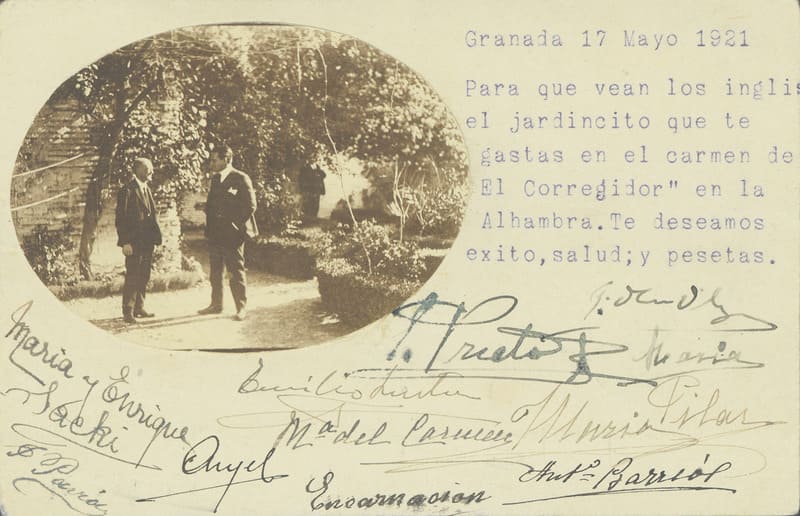 Granada 17 Mayo 1921
Para que vean los inglis
el jardincito que te
gastas en el carmen de
El Corregidor" en la
Alhambra.Te deseamos
exito,salud;y pesetas.
Prieto
Maria
Maria y Enrique
Emilio
Maria Pilar
Mª del Carmen
Angel
Antº Barrios
Encarnacion